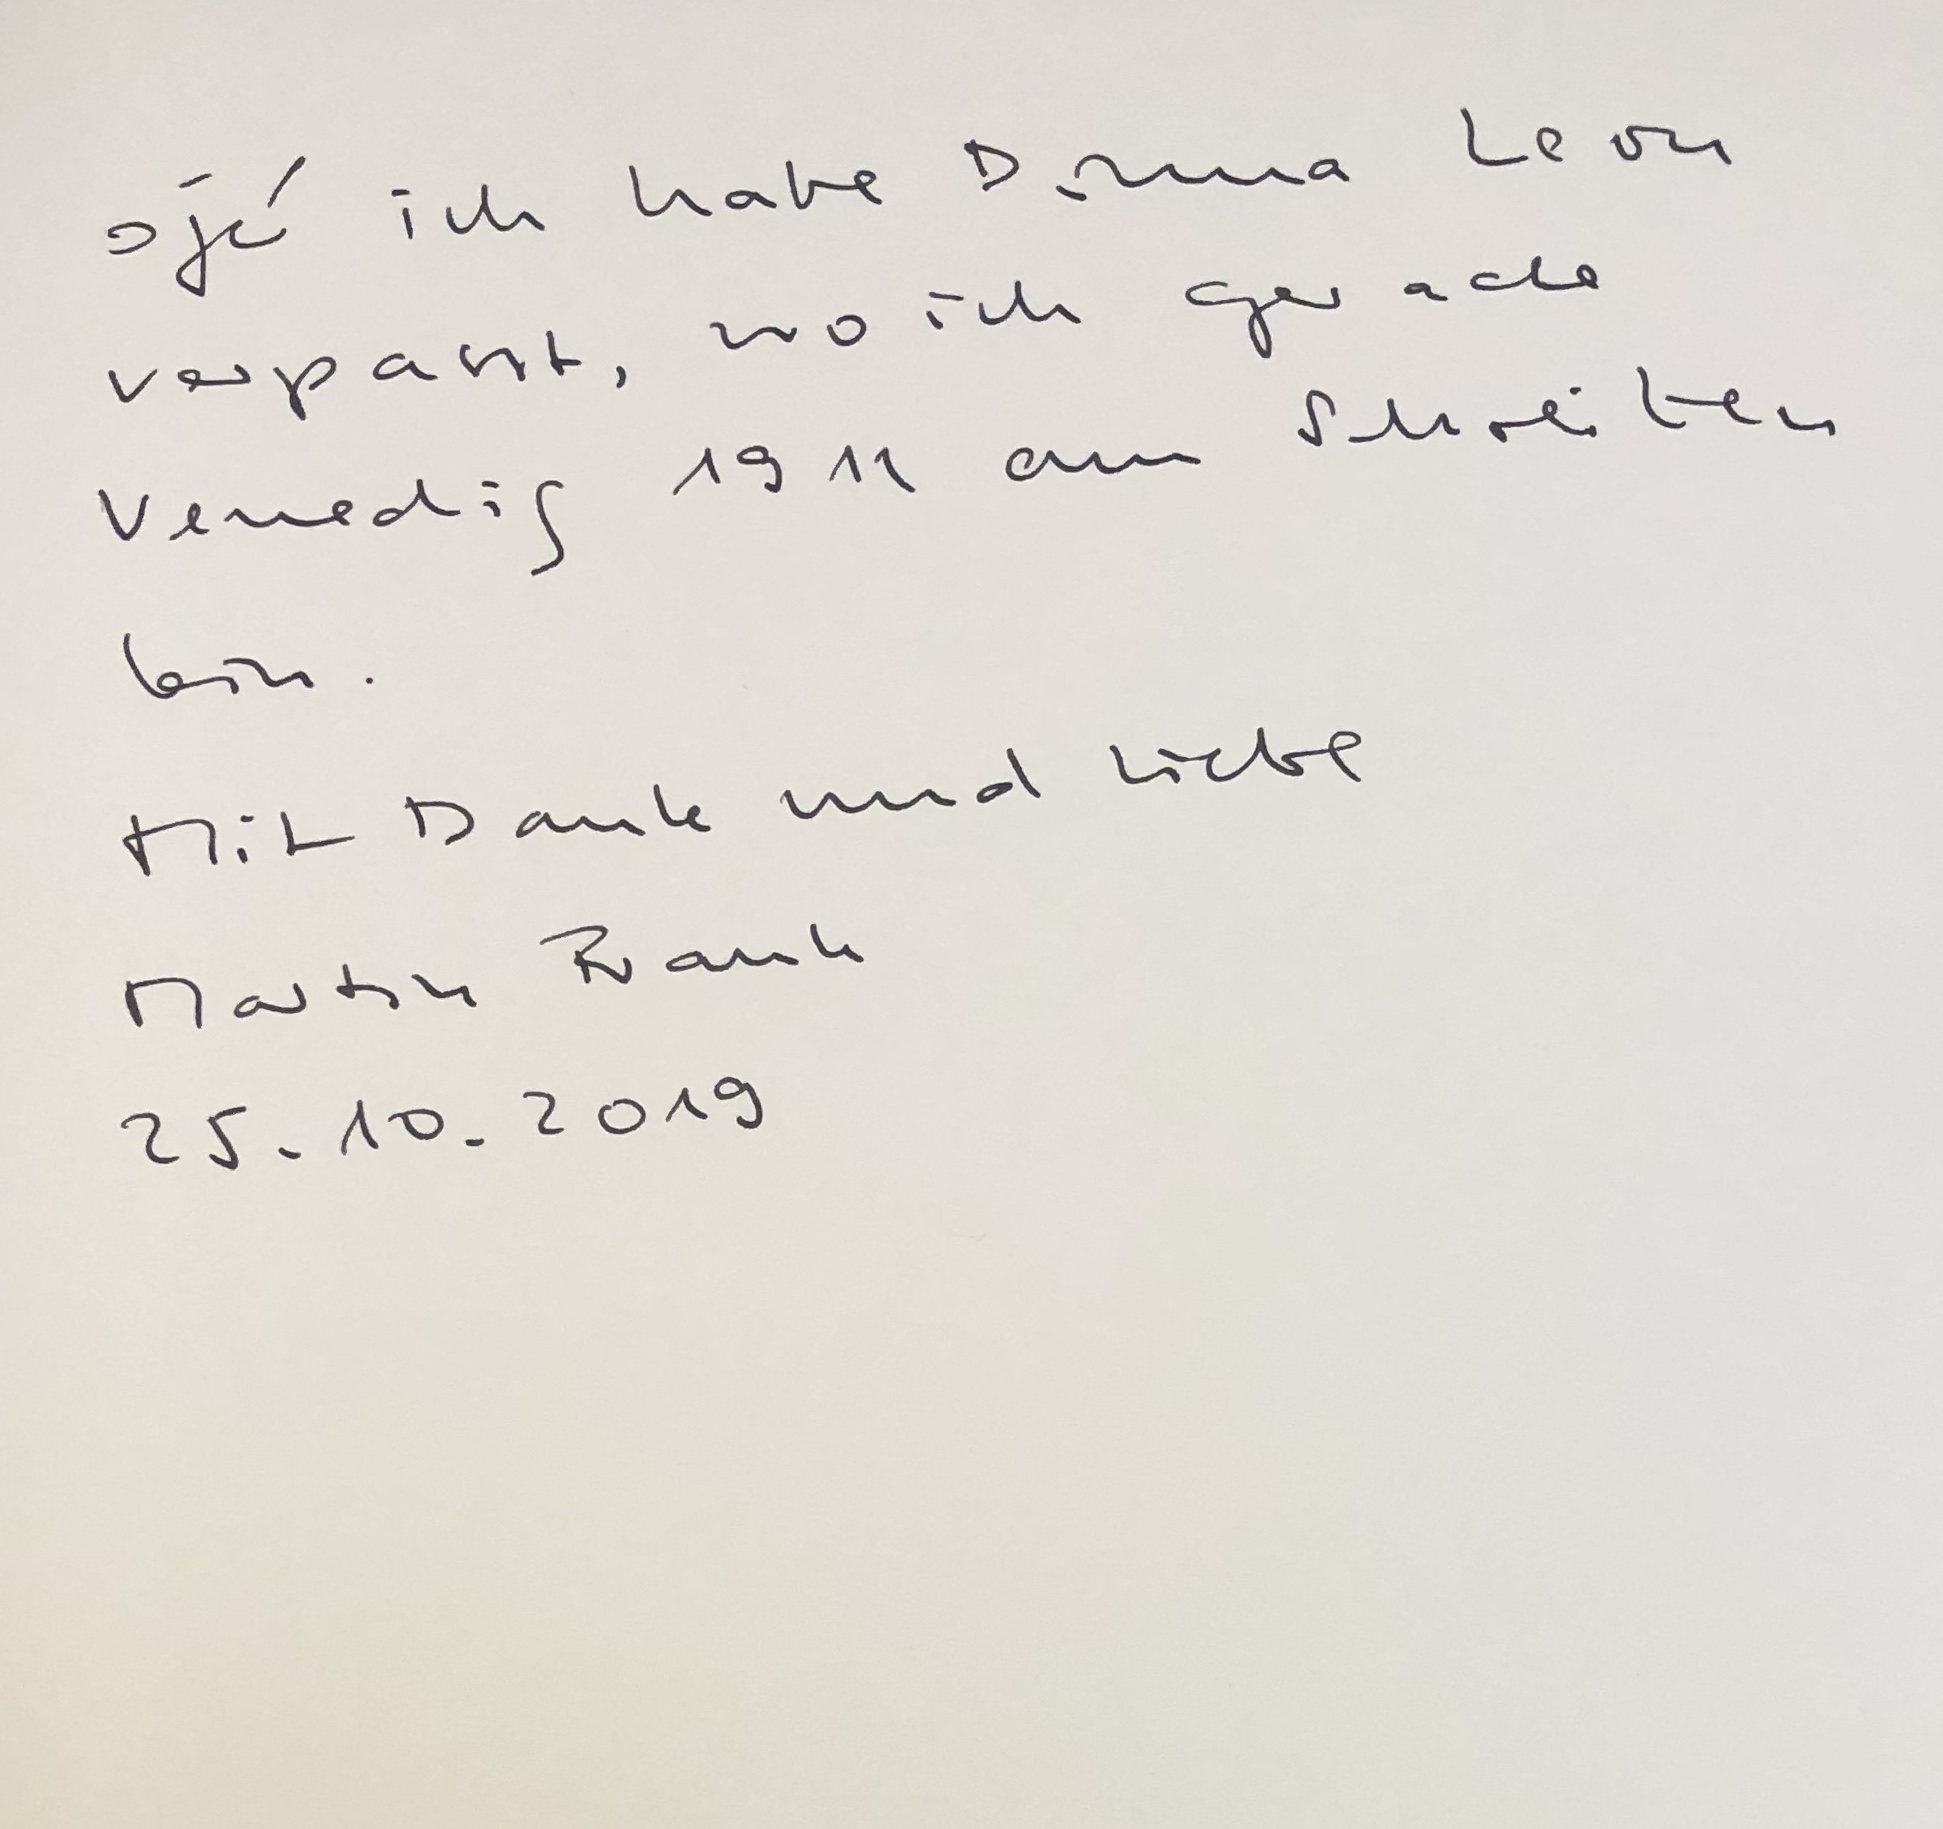 ojé ich habe Donna Leon
verpasst, wo ich gerade
Venedig 1911 am Schreiben
bin.
Mit Dank und Liebe
Martin Frank
25.10.2019